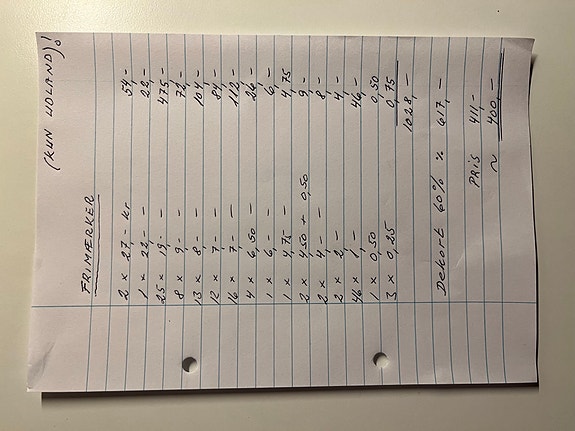 FRIMÆRKER (KUN UDLAND)!
2 x 27,- kr 54,-
1 x 22,- - 22,-
25 x 19,- - 475,-
8 x 9,- - 72,-
13 x 8,- - 104,-
12 x 7,- - 84,-
16 x 7,- - 112,-
4 x 6,50 - 26,-
1 x 6,- - 6,-
1 x 4,75 - 4,75
2 x 4,50 + 0,50 9,-
2 x 4,- - 8,-
2 x 2,- - 4,-
46 x 1,- - 46,-
1 x 0,50 0,50
3 x 0,25 0,75
1028,-
Dekort 60% % 617,-
PRIS 411,-
~ 400,-